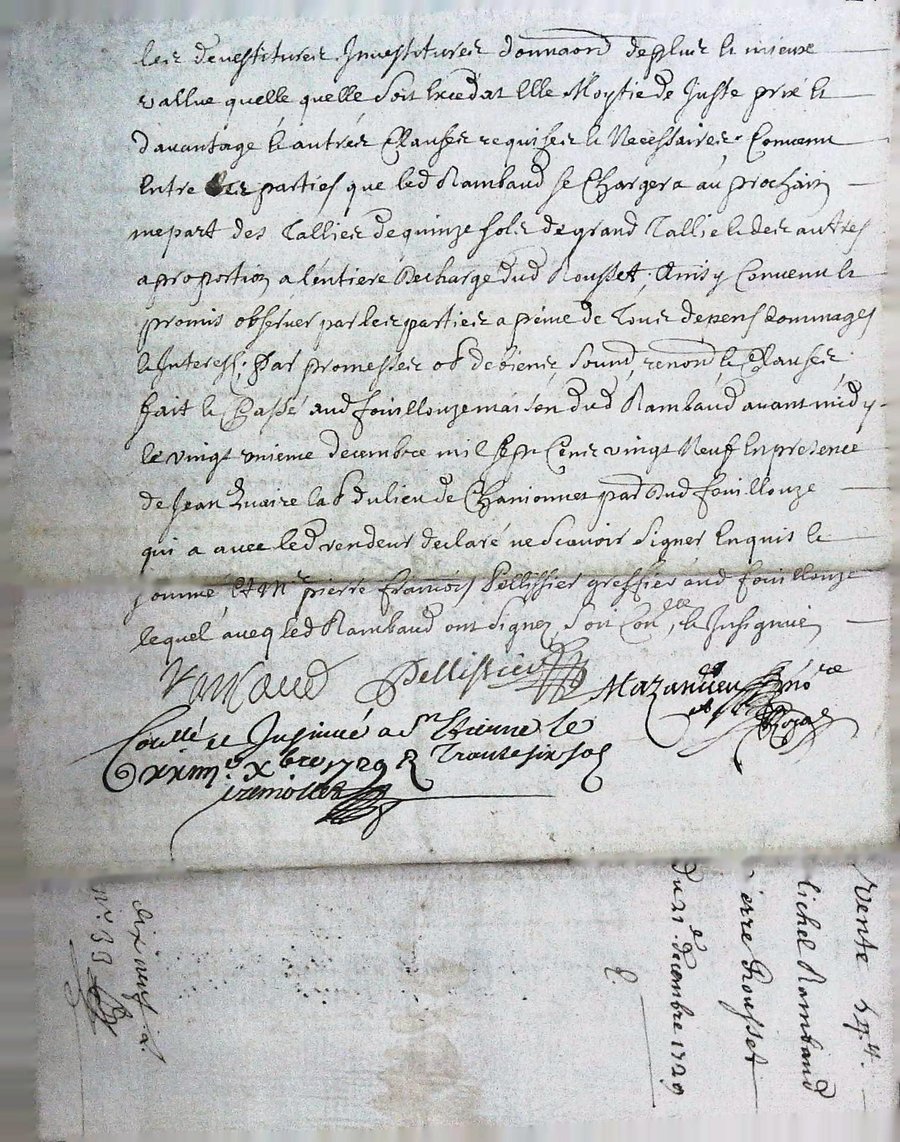 les devestitures Investitures donnaond deplus la mieux
vallue quelle quelle soit Excedat Elle Moytie de Juste prix et
davantage & autres Clauses requises & Necessaires. Convenu
Entre les parties que led Rambaud se Chargera au prochain
mepart des Tallies de quinze sols de grand Tallie & des autres
a proportion a lentiere decharge dud Rousset, Ainsy Convenu et
promis observer par les parties a peine de Tous depens dommages
& Interests. Par promesses ob de biens, soumd, renond, & Clauses
fait & Passé aud fouillouze maison dud Rambaud avant midy
le vingt unieme decembre mil sept Cens vingt Neuf En presence
de Jean lab du lieu de par dud fouillouze
qui a avec led vendeur declaré ne scavoir signer Enquis &
sommé Et Mr pierre françois Pellissier greffier aud fouillouze
lequel aveq led Rambaud ont signez, soit Conlle, & Insignué
Rambaud Pellissier Mazandieu nore
Royal
Conllé et Insinué a St Etienne le
xxiiime xbre 1729 R Trante six sols
vente
Michel Rambaud
Pierre Rousset
Du 21e decembre 1729
dix neuf
n. 33